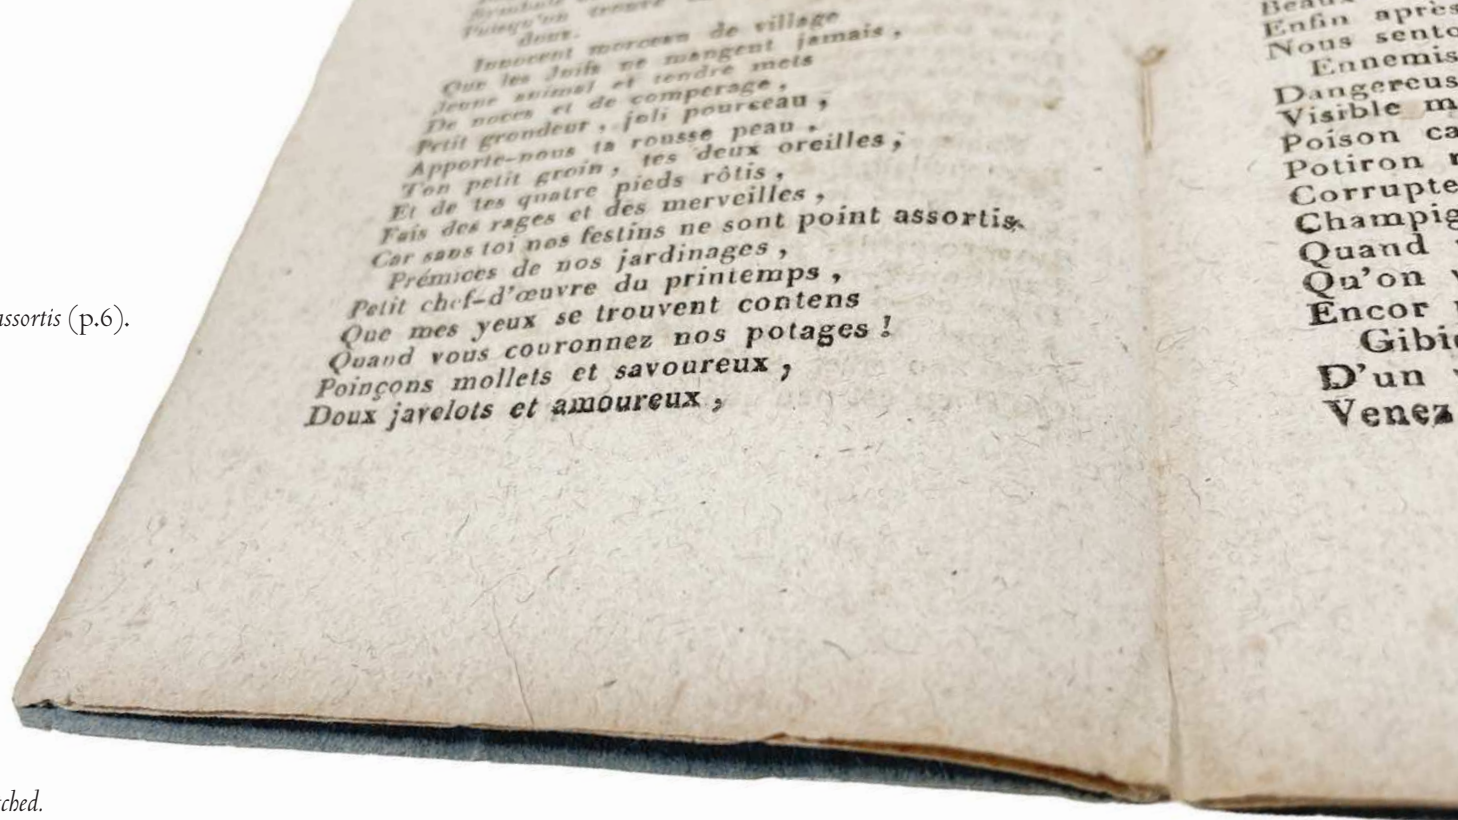 Puisqu'on trouve
dous.
Innocent morceau de village
Que les Juifs ne mangent jamais,
Jeune animal et tendre mets
De noces et de comperage,
Petit grondeur, joli pourceau,
Apporte-nous ta rousse peau,
Ton petit groin, tes deux oreilles,
Et de tes quatre pieds rôtis,
Fais des rages et des merveilles,
Car sans toi nos festins ne sont point assortis.
Prémices de nos jardinages,
Petit chef-d'œuvre du printemps,
Que mes yeux se trouvent contens
Quand vous couronnez nos potages!
Poinçons mollets et savoureux,
Doux javelots et amoureux,
Enfin après
Nous sento
Ennemis
Dangereus
Visible m
Poison ca
Potiron
Corrupte
Champig
Quand
Qu'on
Encor
Gibi
D'un
Venez
assortis (p.6).
ched.